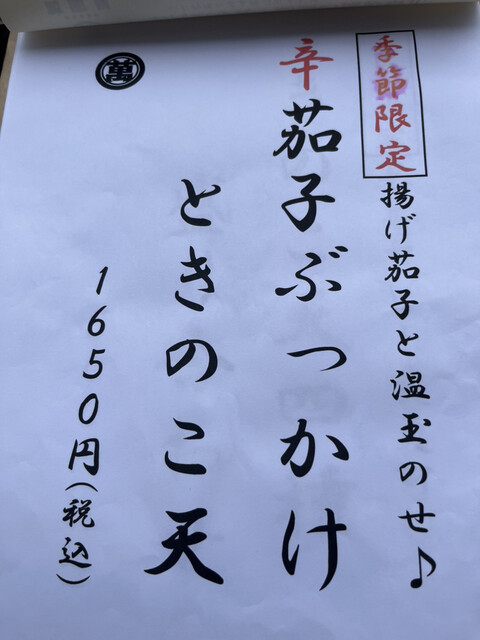 季節限定
揚げ茄子と温玉のせ♪
辛茄子ぶっかけ
ときのこ天
1650円(税込)
萬